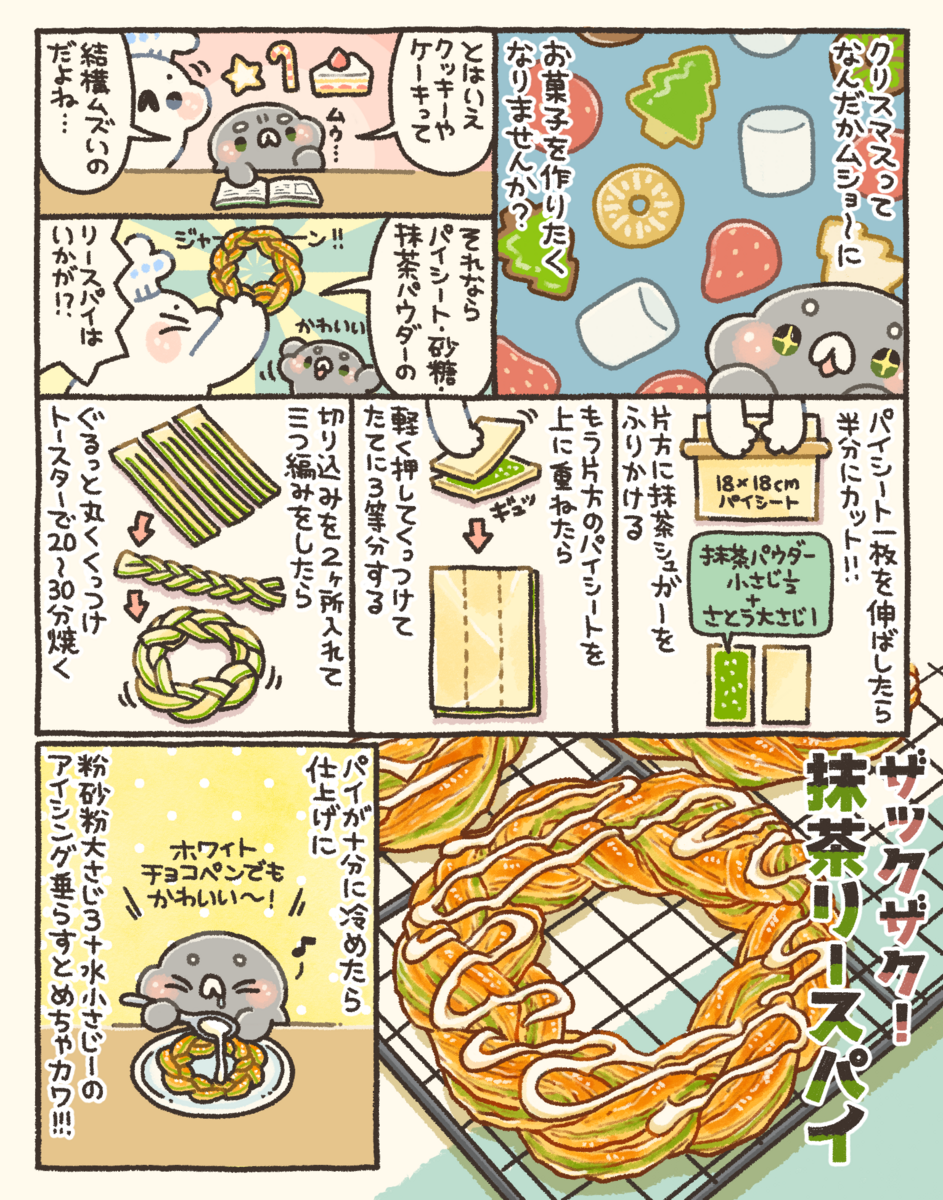 クリスマスって
なんだかムショ〜に
お菓子を作りたく
なりませんか？
とはいえ
クッキーや
ケーキって
ムゥ…
結構ムズいの
だよね…
それなら
パイシート・砂糖・
抹茶パウダーの
ジャーーーン!!
かわいい
リースパイは
いかが!?
パイシート一枚を伸ばしたら
半分にカット!!
18×18cm
パイシート
片方に抹茶シュガーを
ふりかける
抹茶パウダー
小さじ½
+
さとう大さじ1
もう片方のパイシートを
上に重ねたら
ギュッ
軽く押してくっつけて
たてに3等分する
切り込みを2ヶ所入れて
三つ編みをしたら
ぐるっと丸くくっつけ
トースターで20〜30分焼く
ザックザク！
抹茶リースパイ
パイが十分に冷めたら
仕上げに
ホワイト
チョコペンでも
かわいい〜！
粉砂粉大さじ3＋水小さじ1の
アイシング垂らすとめちゃカワ!!!